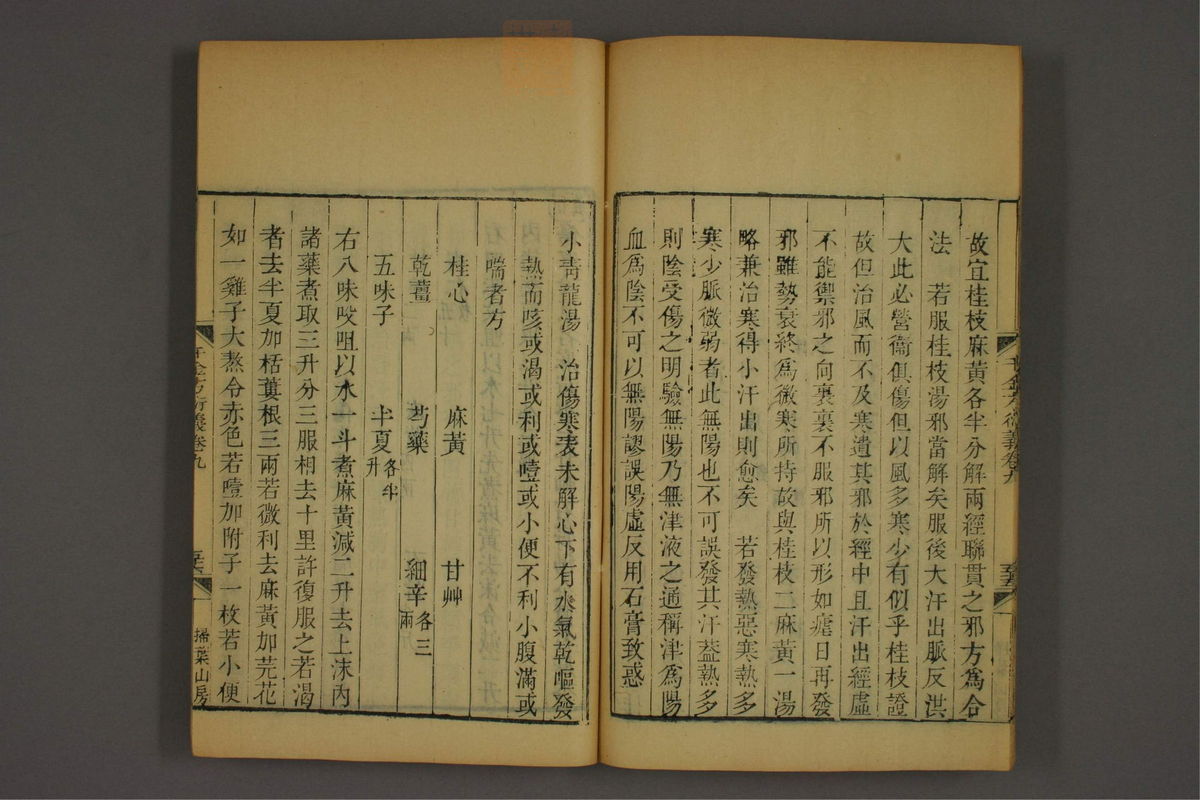 故宜桂枝麻黃各半分解兩經聯貫之邪方爲合
法　若服桂枝湯邪當解矣服後大汗出脈反洪
大此必營衞俱傷但以風多寒少有似乎桂枝證
故但治風而不及寒遺其邪於經中且汗出經虛
不能禦邪之向裏裏不服邪所以形如瘧日再發
邪雖勢衰終爲微寒所持故與桂枝二麻黃一湯
略兼治寒得小汗出則愈矣　若發熱惡寒熱多
寒少脈微弱者此無陽也不可誤發其汗葢熱多
則陰受傷之明驗無陽乃無津液之通稱津爲陽
血爲陰不可以無陽謬誤陽虛反用石膏致惑
小靑龍湯　治傷寒表未解心下有水氣乾嘔發
熱而咳或渴或利或噎或小便不利小腹滿或
喘者方
桂心　麻黃　甘艸
乾薑　芍藥　細辛各三兩
五味子　半夏各半升
右八味㕮咀以水一斗煮麻黃減二升去上沫內
諸藥煮取三升分三服相去十里許復服之若渴
者去半夏加栝蔞根三兩若微利去麻黃加芫花
如一雞子大熬令赤色若噎加附子一枚若小便
千金方衍義卷九
掃葉山房